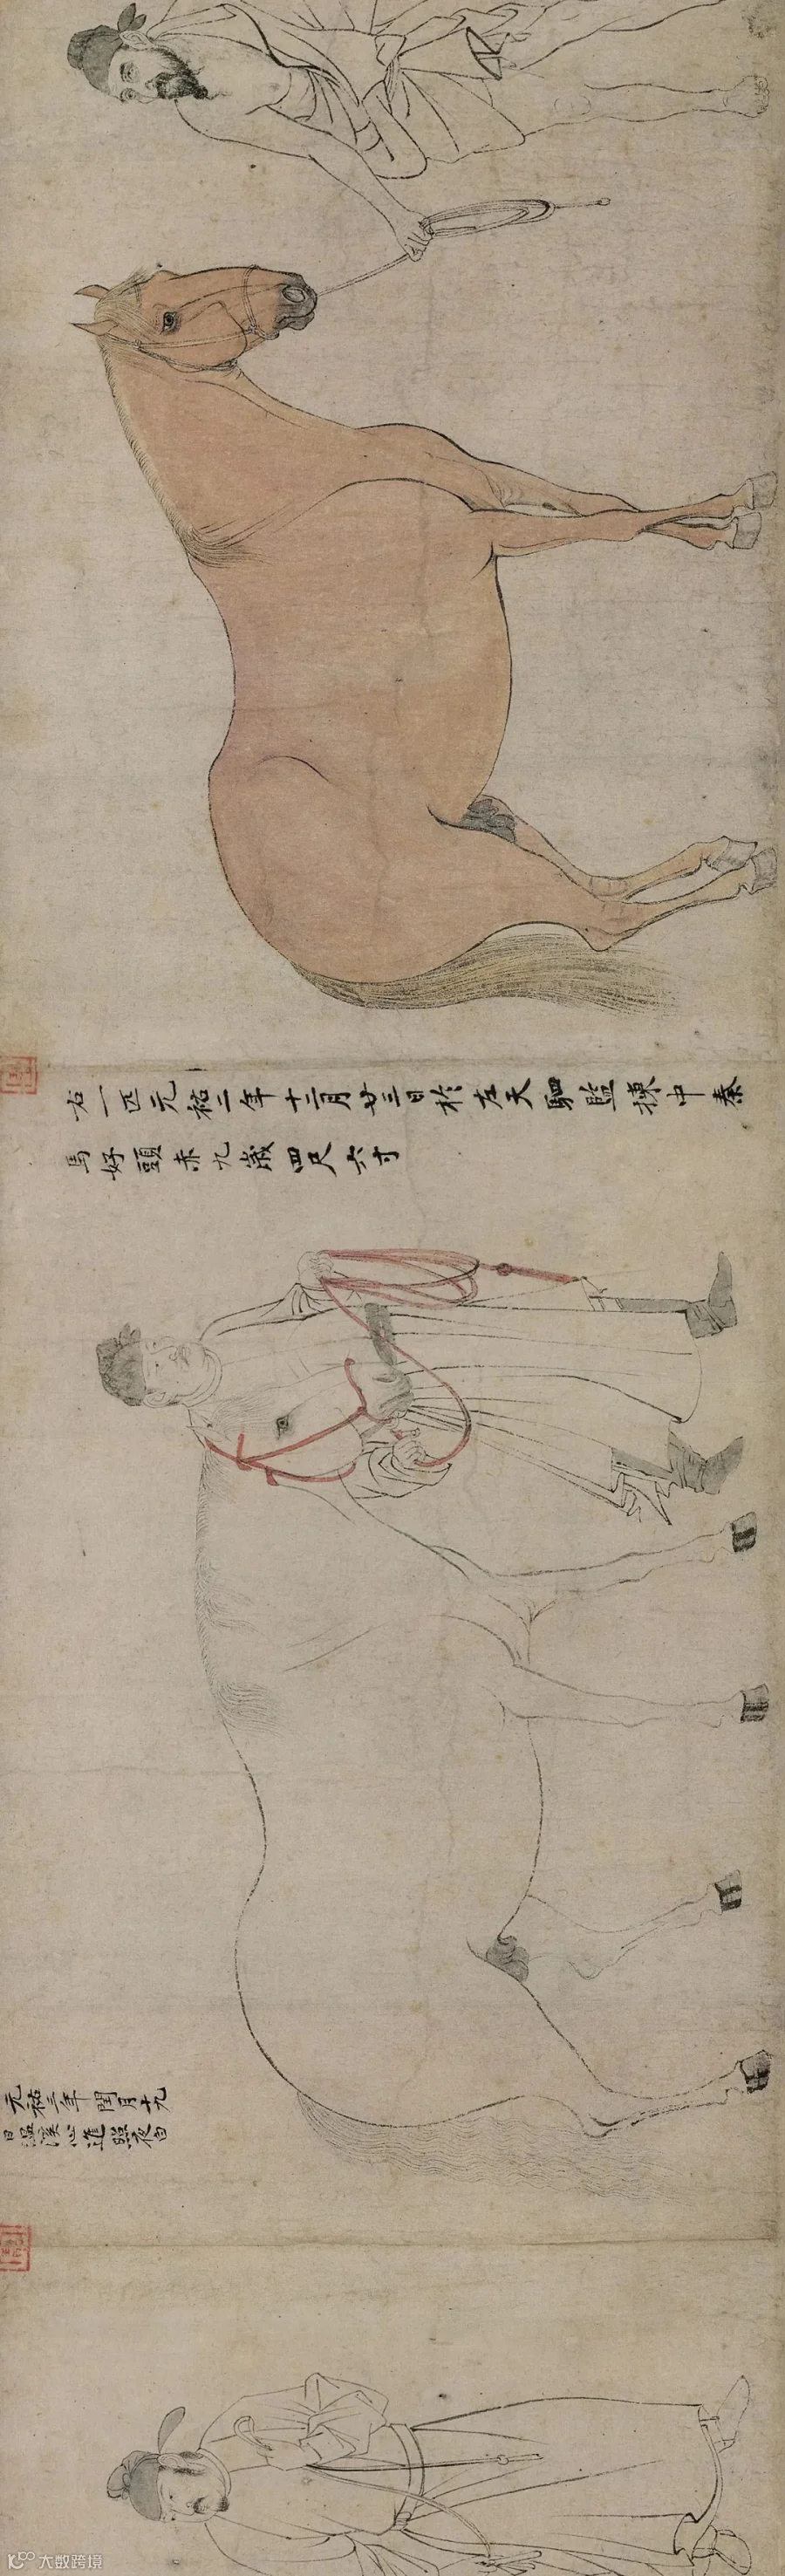 右一匹元祐二年十二月廿三日於左天駟監揀中秦
馬好頭赤九歲四尺六寸
元祐三年閏月十九
日溫溪心進照夜白
大数跨境